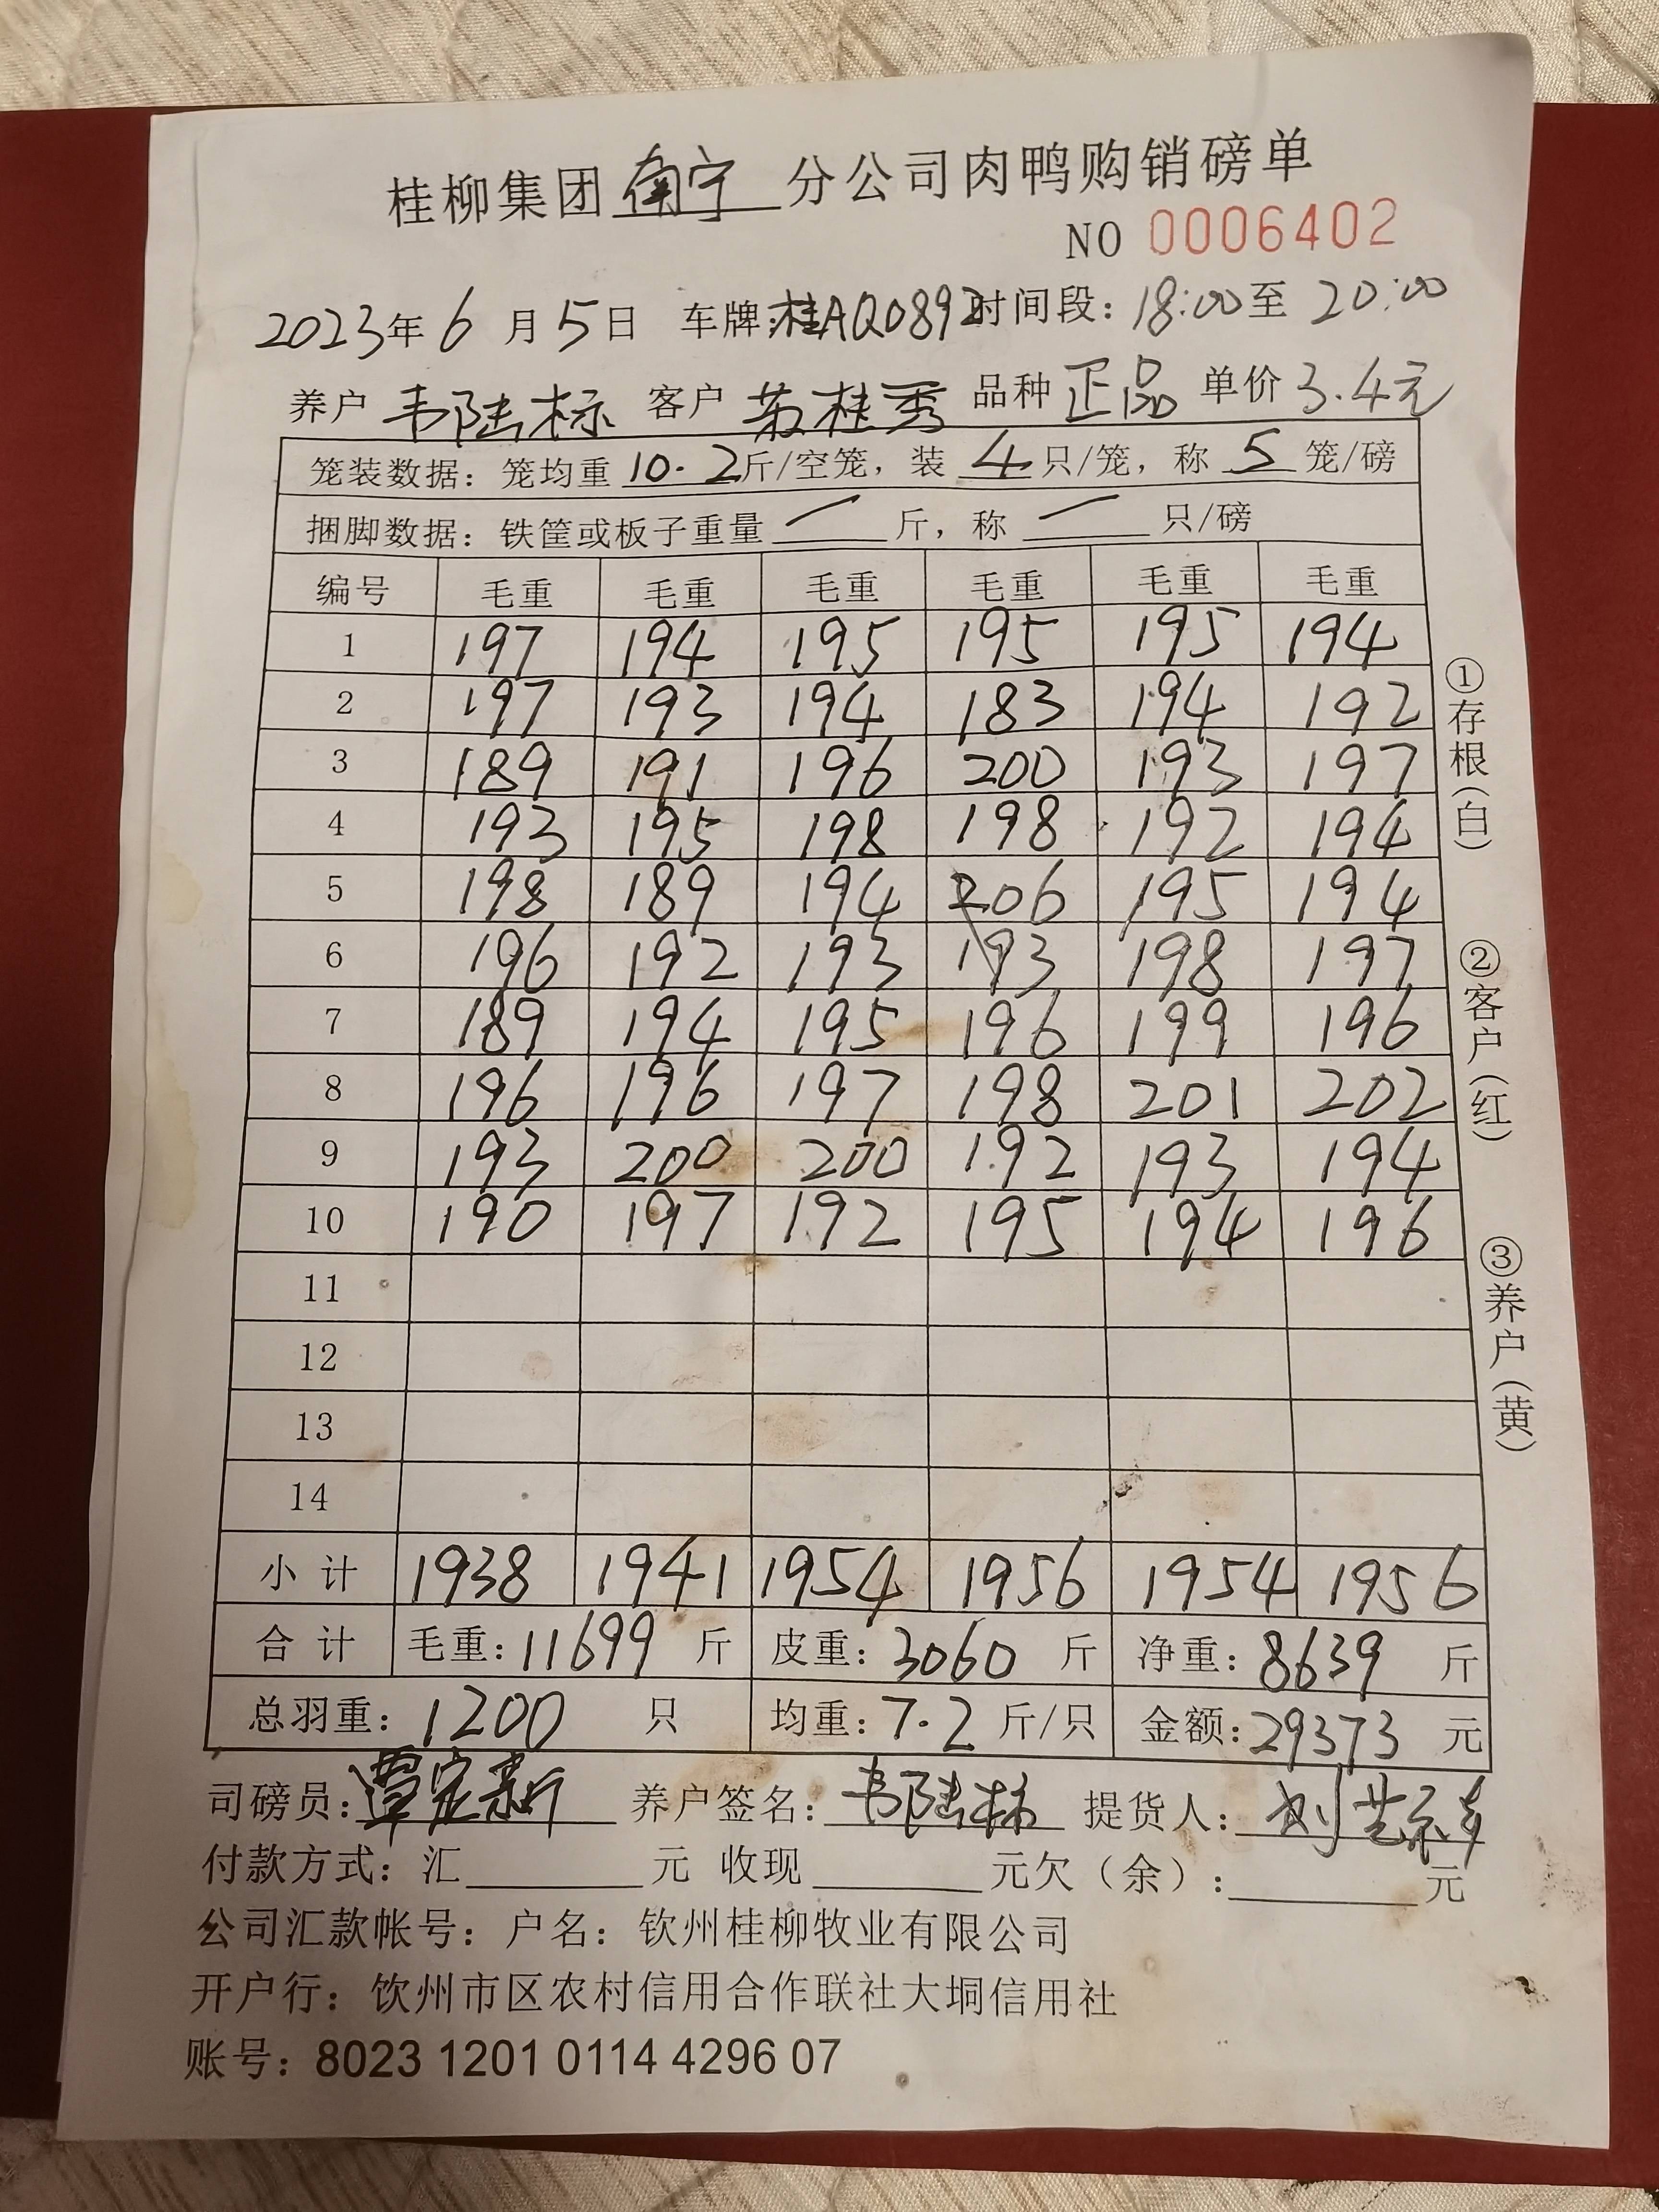 桂柳集团南宁分公司肉鸭购销磅单
NO 0006402
2023年6月5日 车牌:桂AQ0892时间段:18:00至20:00
养户韦陆标 客户苏桂秀 品种正品 单价3.4元
笼装数据:笼均重10.2斤/空笼,装4只/笼,称5笼/磅
捆脚数据:铁筐或板子重量 一 斤,称 一 只/磅
编号 毛重 毛重 毛重 毛重 毛重 毛重
1 197 194 195 195 195 194
2 197 193 194 183 194 192
3 189 191 196 200 193 197
4 193 195 198 198 192 194
5 198 189 194 206 195 194
6 196 192 193 193 198 197
7 189 194 195 196 199 196
8 196 196 197 198 201 202
9 193 200 200 192 193 194
10 190 197 192 195 194 196
11
12
13
14
小计 1938 1941 1954 1956 1954 1956
合计 毛重:11699斤 皮重:3060斤 净重:8639斤
总羽重:1200只 均重:7.2斤/只 金额:29373元
司磅员:覃宏新 养户签名:韦陆标 提货人:刘
付款方式:汇______元 收现______元欠(余):______元
公司汇款帐号:户名:钦州桂柳牧业有限公司
开户行:饮州市区农村信用合作联社大垌信用社
账号:8023 1201 0114 4296 07
①存根(白)
②客户(红)
③养户(黄)